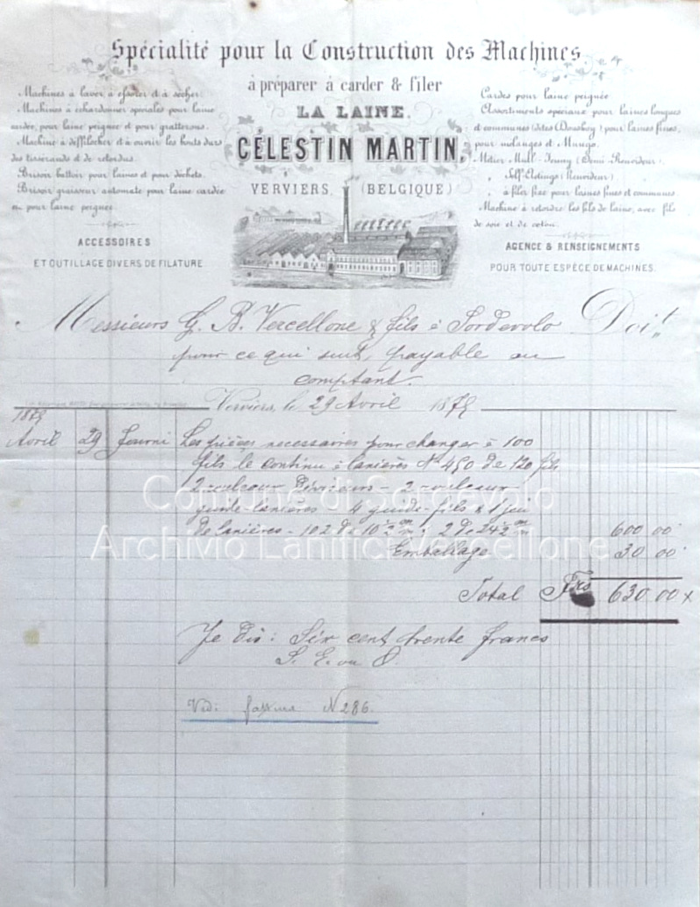 Spécialité pour la Construction des Machines
à préparer à carder & filer
LA LAINE.
CÉLESTIN MARTIN,
VERVIERS, (BELGIQUE)
Machines à laver à essorer et à sécher.
Machines à échardonner spéciales pour laine
cardée, pour laine peignée et pour gratterons.
Machine à défflocher et à ouvrir les bouts durs
des tisserands et de retordus.
Brisoir battoir pour laines et pour déchets.
Brisoir graisseur automate pour laine cardée
ou pour laine peignée.
ACCESSOIRES
ET OUTILLAGE DIVERS DE FILATURE
Cardes pour laine peignée
Assortiments spéciaux pour laines longues
et communes (dites Donskoy) pour laines fines,
pour mélanges et Mungo.
Métier Mull-Jenny (Demi Renvideur)
Self-Acting (Renvideur)
à filer fixe pour laines fines et communes
Machine à retordre les fils de laine, avec fils
de soie et de coton.
AGENCE & RENSEIGNEMENTS
POUR TOUTE ESPÈCE DE MACHINES.
Messieurs G. B. Vercellone & fils à Sordevolo Doit
pour ce qui suit, payable au
comptant.
Verviers, le 29 Avril 1875
1875
Avril 29 Fourni Les pièces nécessaires pour changer à 100
fils le continu à lanières N° 450 de 120 fils
2 rouleaux diviseurs - 2 rouleaux
guide-lanières - 4 guide-fils & 1 jeu
de lanières - 102 de 10½ m/m 2 de 24½ m/m 600 00
Emballage 30 00
Total Frs 630.00 x
Je dis: Six cent trente francs
S. E. ou O.
Vedi fattura N 286.
Comune di Sordevolo
Archivio Lanificio Vercellone